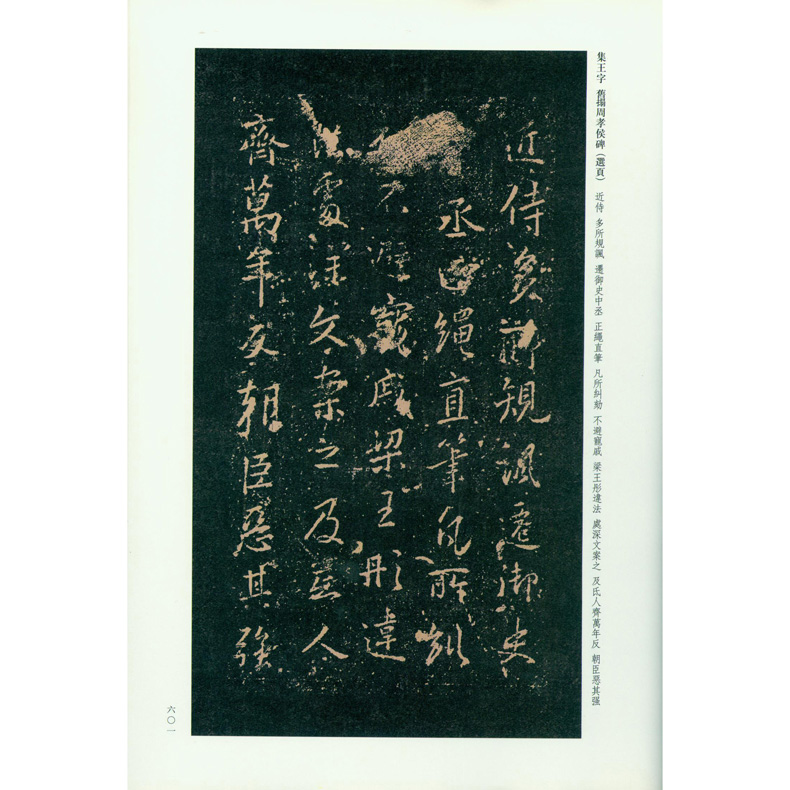 集王字 舊搨周孝侯碑（選頁） 近侍 多所規諷 遷御史中丞 正繩直筆 凡所糾劾 不避寵戚 梁王彤違法 處深文案之 及氏人齊萬年反 朝臣惡其强
近侍多所規諷遷御史
丞正繩直筆凡所糾
不避寵戚梁王彤違
法處深文案之及氐人
齊萬年反朝臣惡其強
六〇一